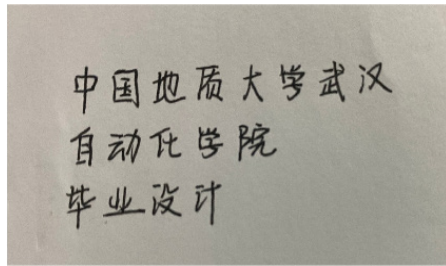 中国地质大学武汉
自动化学院
毕业设计